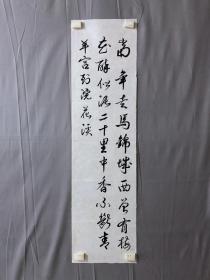 當年走馬錦城西曾有梅
花醉似泥二十里中香不斷青
羊宮到浣花溪